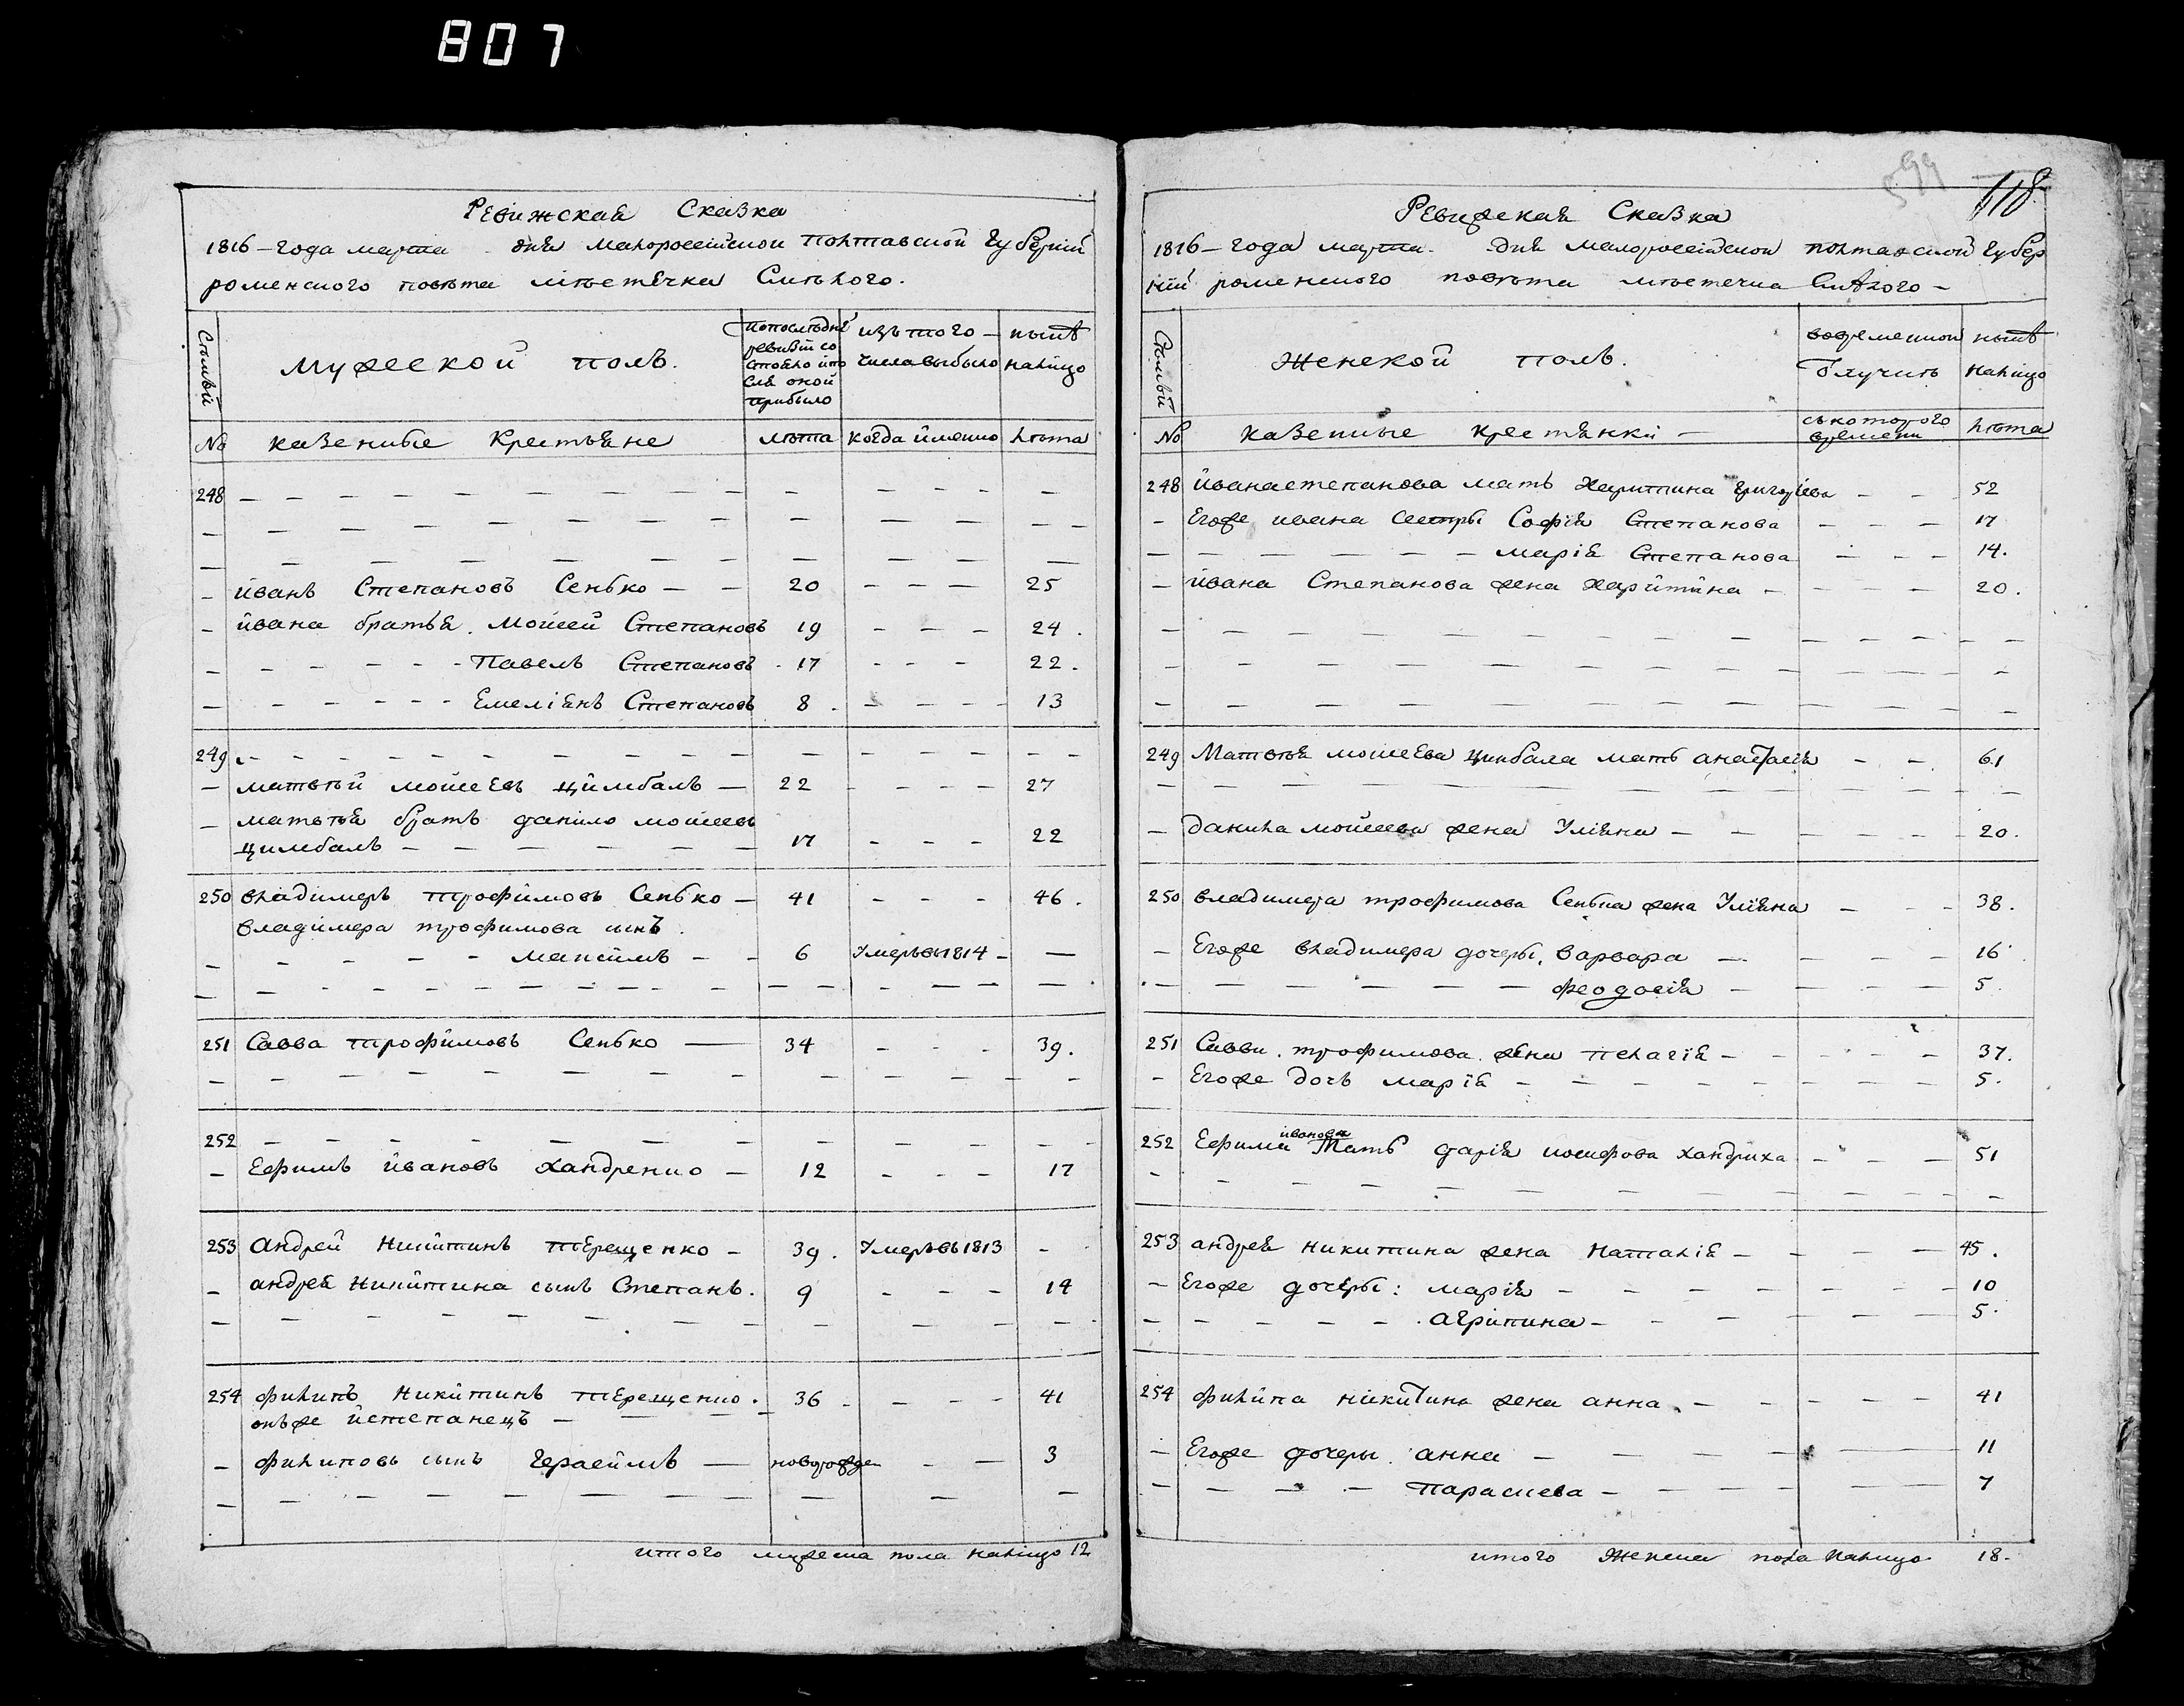 807
Ревижская Сказка
1816 - года марта дня малоросейской полтавской Губерний
роменского повѣта мѣстечка Смѣлого.
Мужеской полъ.
изъ того - нынѣ
числа выбыло налицо
прибыло
No казенные Крестьяне лѣта когда имено лѣта
248 — — — — — — —
— — — — — — —
— — — — — — —
- Йванъ Степановъ Сенько — — 20 - - - 25
- Йвана братья. Мойсей Степановъ 19 - - - 24.
- - - - - Павелъ Степановъ 17 - - - 22.
- - - - - Емеліянъ Степановъ 8 - - - 13
249 - - - - - - -
- матвѣй мойсеевъ цймбалъ — 22 - - - 27
- матвѣя братъ данило мойсеевъ
цимбалъ — — — 17 - - - 22
250 владимеръ трофимовъ Сенько — 41 - - - 46.
владимера трофимова сынъ.
- - - - - максимъ - - 6 Умеръ въ 1814 - —
- - - - - - -
251 Савва трофимовъ Сенько — 34 - - - 39.
- - - - - - -
252 - - - - - - -
- Ефимъ йвановъ хандренко — 12 - - - 17
253 андрей никитинъ терещенко - 39. Умеръ въ 1813 -
- андрея никитина сынъ Степанъ. 9 - - - 14
- - - - - - -
254 филипъ никитинъ терещенко. 36 - - - 41
онъ же йстепанецъ — — —
- филиповъ сынъ Герасймъ — новорожден - — 3
- - - - - - -
итого мужеска пола налицо 12
599
118
Ревижская Сказка
1816 - года марта. дня малоросейской полтавской Губер
ній роменского повѣта мѣстечка Смѣлого -
Женской полъ.
во временной нынѣ
отлучкѣ налицо
No казенные крестянки — съ которого времени лѣта
248 йвана степанова мать Харитина григорієва - - 52
- Егоже ивана сестры Софія Степанова - - - 17
- - - - - - марія Степанова - - - 14.
- йвана Степанова жена харитина - - - - 20.
- - - - - - -
- - - - - - -
- - - - - - -
249 Матвѣя мойсеева цинбала мать анастасія - - 61
- - - - - - -
- данила мойсеева жена Уліяна - - - - 20.
250 владимера трофимова Сенька жена Уліяна - - - 38.
- Егоже владимера дочеры, варвара - - - - 16
- - - - - - феодосія - - - - 5.
251 Саввы трофимова жена пелагія - - - - 37.
- Егоже дочь марія - - - - 5.
252 Ефима иванова мать дарія иосифова хандриха - - - 51
- - - - - - -
253 андрея никитина жена наталія - - - - 45.
- Егоже дочеры: марія - - - - 10
- - - - - агрипина - - - - 5.
254 филипа никитина жена анна - - - - 41
- Егоже дочеры анна - - - - 11
- - - - параскева - - - - 7
итого Женска пола налицо 18.